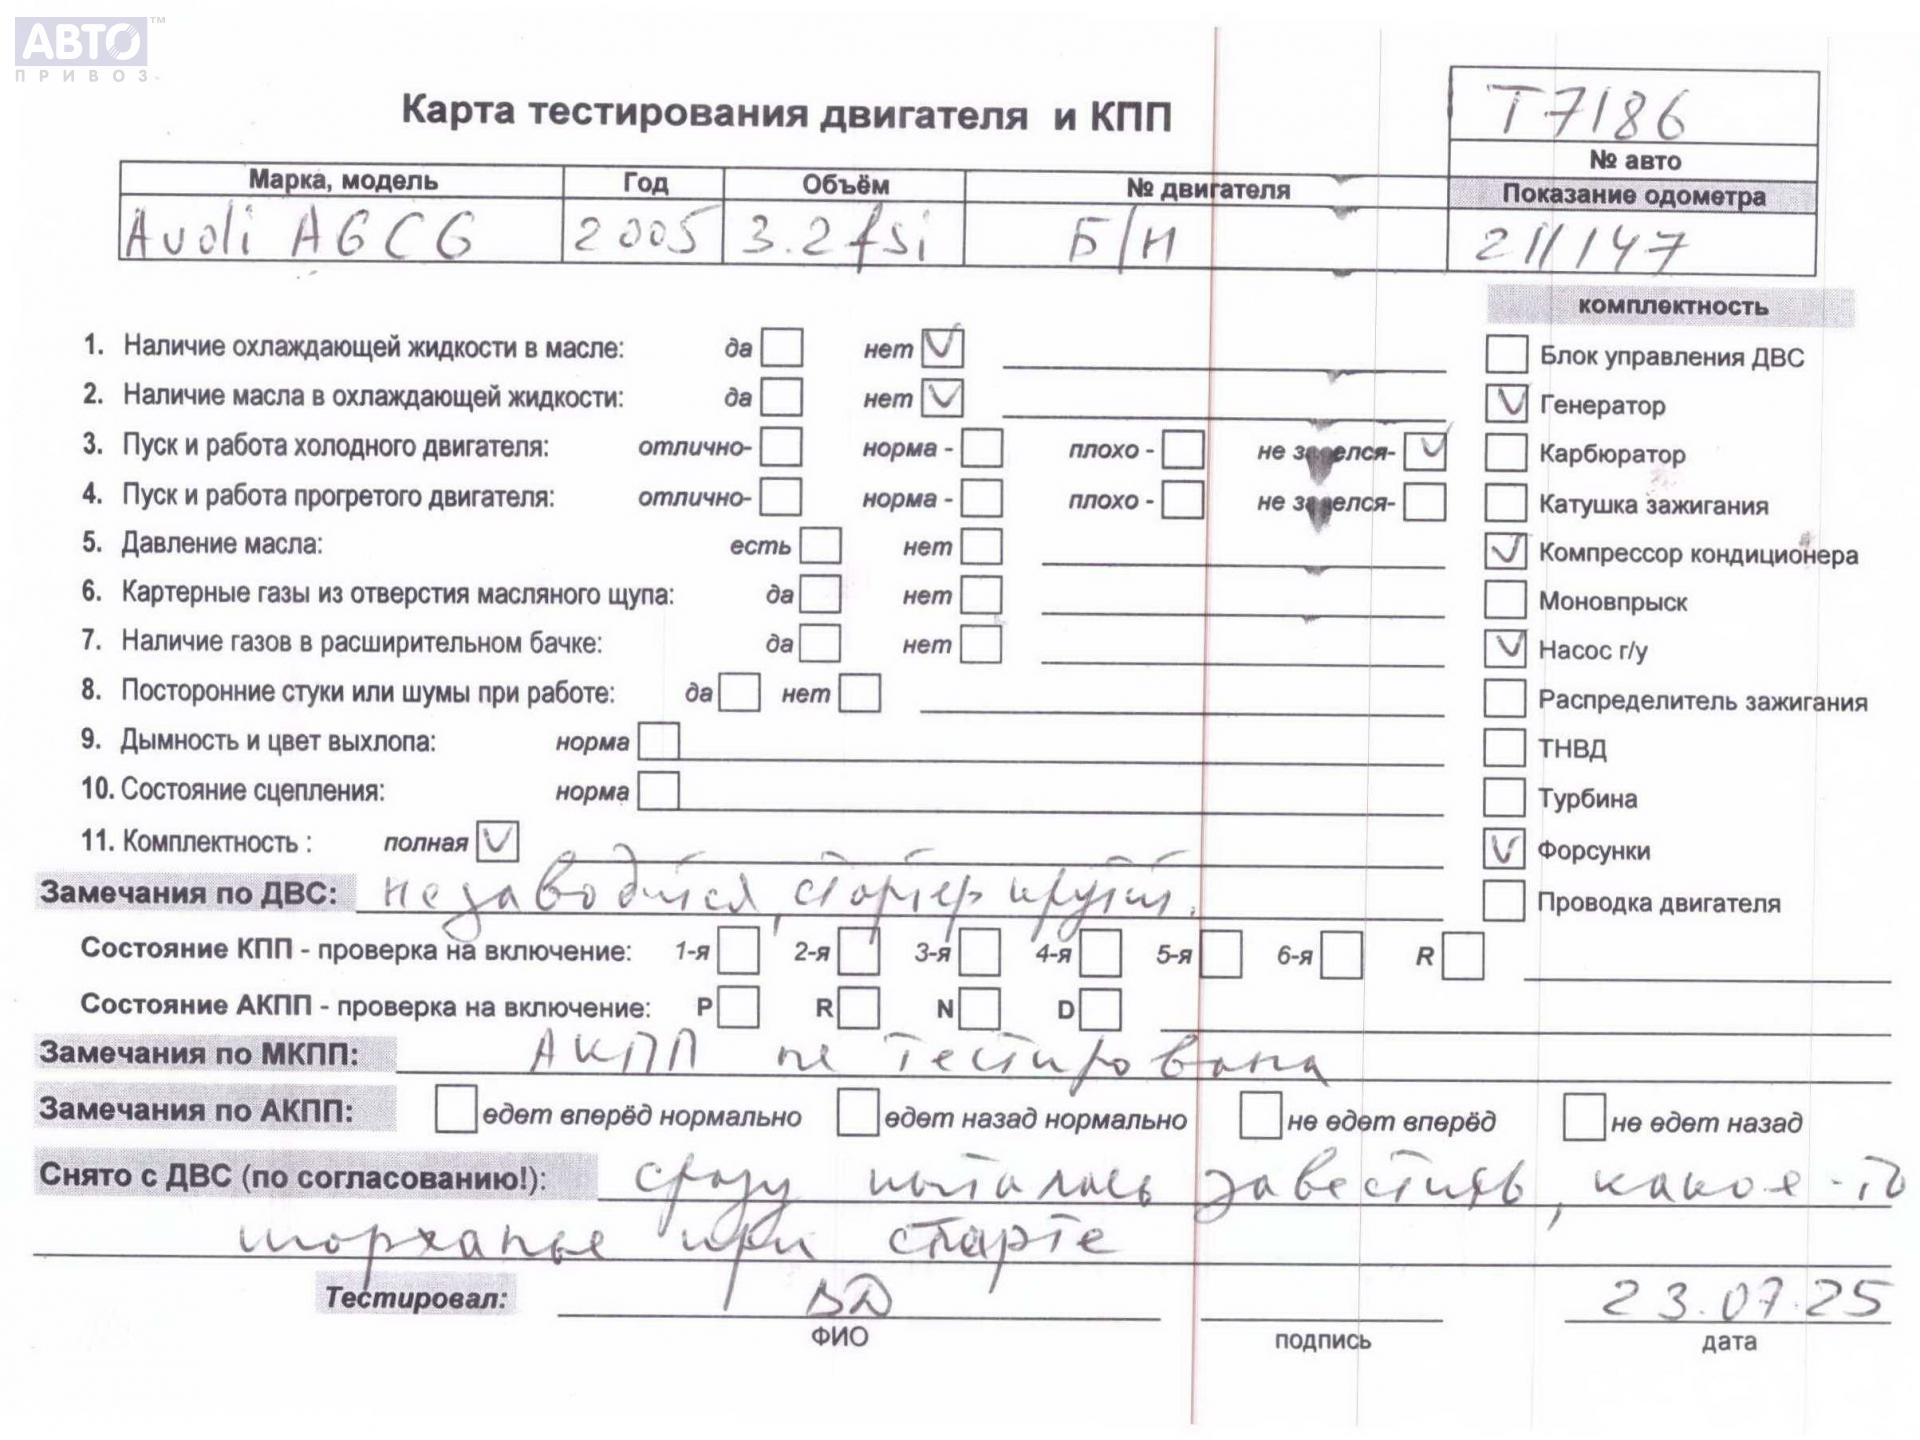 АВТО™
ПРИВОЗ
Карта тестирования двигателя и КПП
T7186
№ авто
Марка, модель Год Объём № двигателя Показание одометра
Audi A6C6 2005 3.2 fsi Б/Н 211147
комплектность
1. Наличие охлаждающей жидкости в масле: да нет V
Блок управления ДВС
2. Наличие масла в охлаждающей жидкости: да нет V
V Генератор
3. Пуск и работа холодного двигателя: отлично- норма - плохо - не завелся- V
Карбюратор
4. Пуск и работа прогретого двигателя: отлично- норма - плохо - не завелся-
Катушка зажигания
5. Давление масла: есть нет
V Компрессор кондиционера
6. Картерные газы из отверстия масляного щупа: да нет
Моновпрыск
7. Наличие газов в расширительном бачке: да нет
V Насос г/у
8. Посторонние стуки или шумы при работе: да нет
Распределитель зажигания
9. Дымность и цвет выхлопа: норма
ТНВД
10. Состояние сцепления: норма
Турбина
11. Комплектность : полная V
V Форсунки
Замечания по ДВС: не заводится, стартер крутит.
Проводка двигателя
Состояние КПП - проверка на включение: 1-я 2-я 3-я 4-я 5-я 6-я R
Состояние АКПП - проверка на включение: P R N D
Замечания по МКПП: АКПП не тестирована
Замечания по АКПП: едет вперёд нормально едет назад нормально не едет вперёд не едет назад
Снято с ДВС (по согласованию!): сразу пыталась завестись, какое-то
шорханье при старте
Тестировал: ВД 23.07.25
ФИО подпись дата